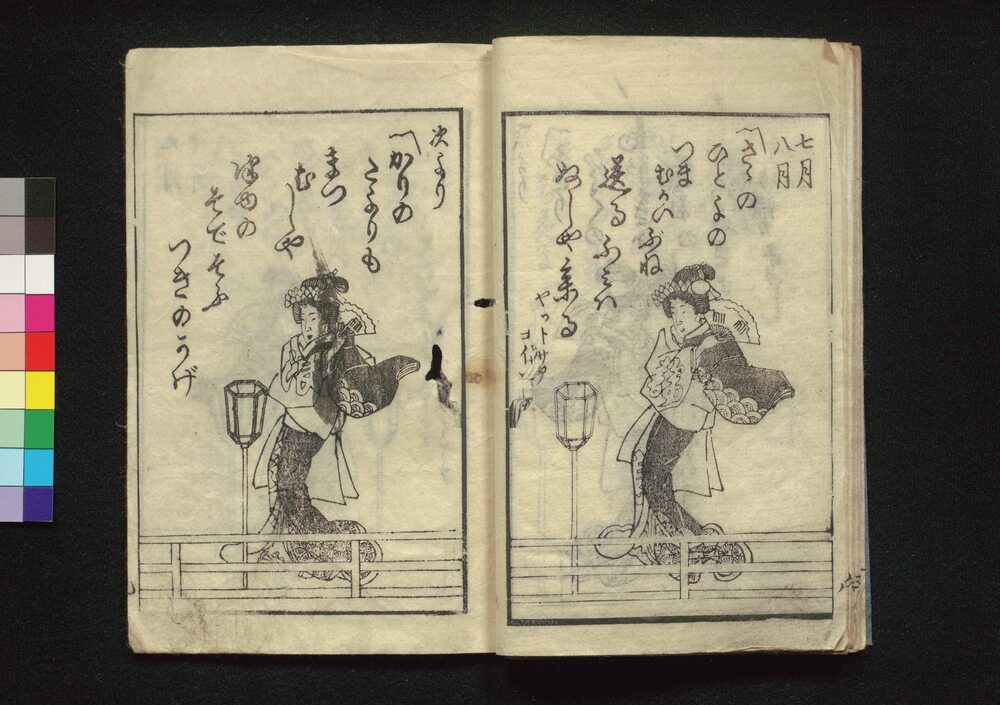 七月
八月
〽さゝの
ひとよの
つま
むかいぶね
送るふみハ
ぬしや来る
ヤットサ
コイ
次より
〽かりの
たよりも
まつ
むしや
そでそふ
つきのかげ